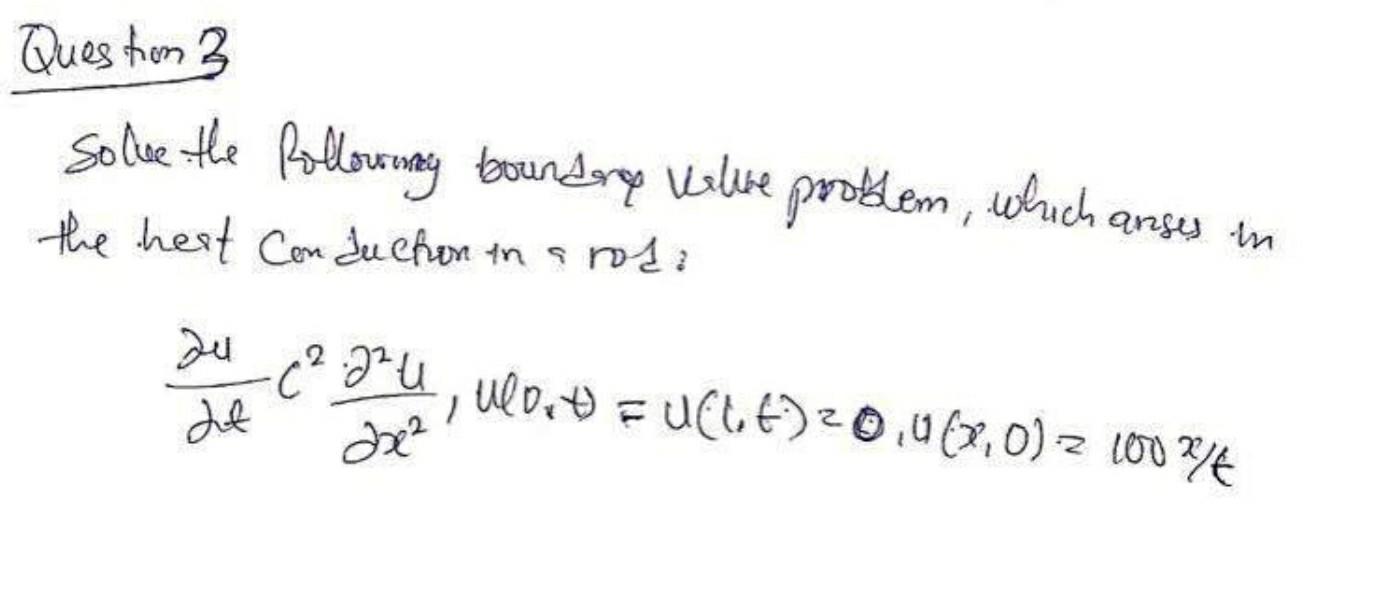 Question 3
Solve the following boundary value problem, which arises in
the heat conduction in a rod:
∂u/∂t c² ∂²u/∂x², u(0,t) = u(l,t) = 0, u(x,0) = 100 x/t